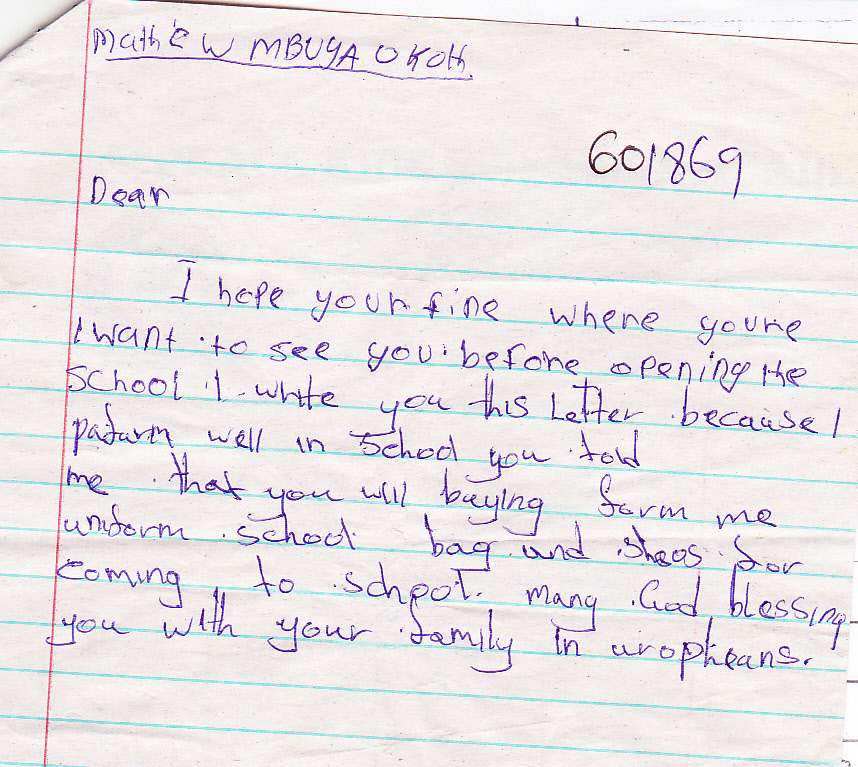 Mathew MBUYA OKOth
601869
Dear
I hope your fine where youre
I want to see you before opening the
School I write you this Letter because I
pafarm well in School you told
me that you will buying form me
uniform school bag and sheos for
coming to school. many God blessing
you with your family in uropheans.